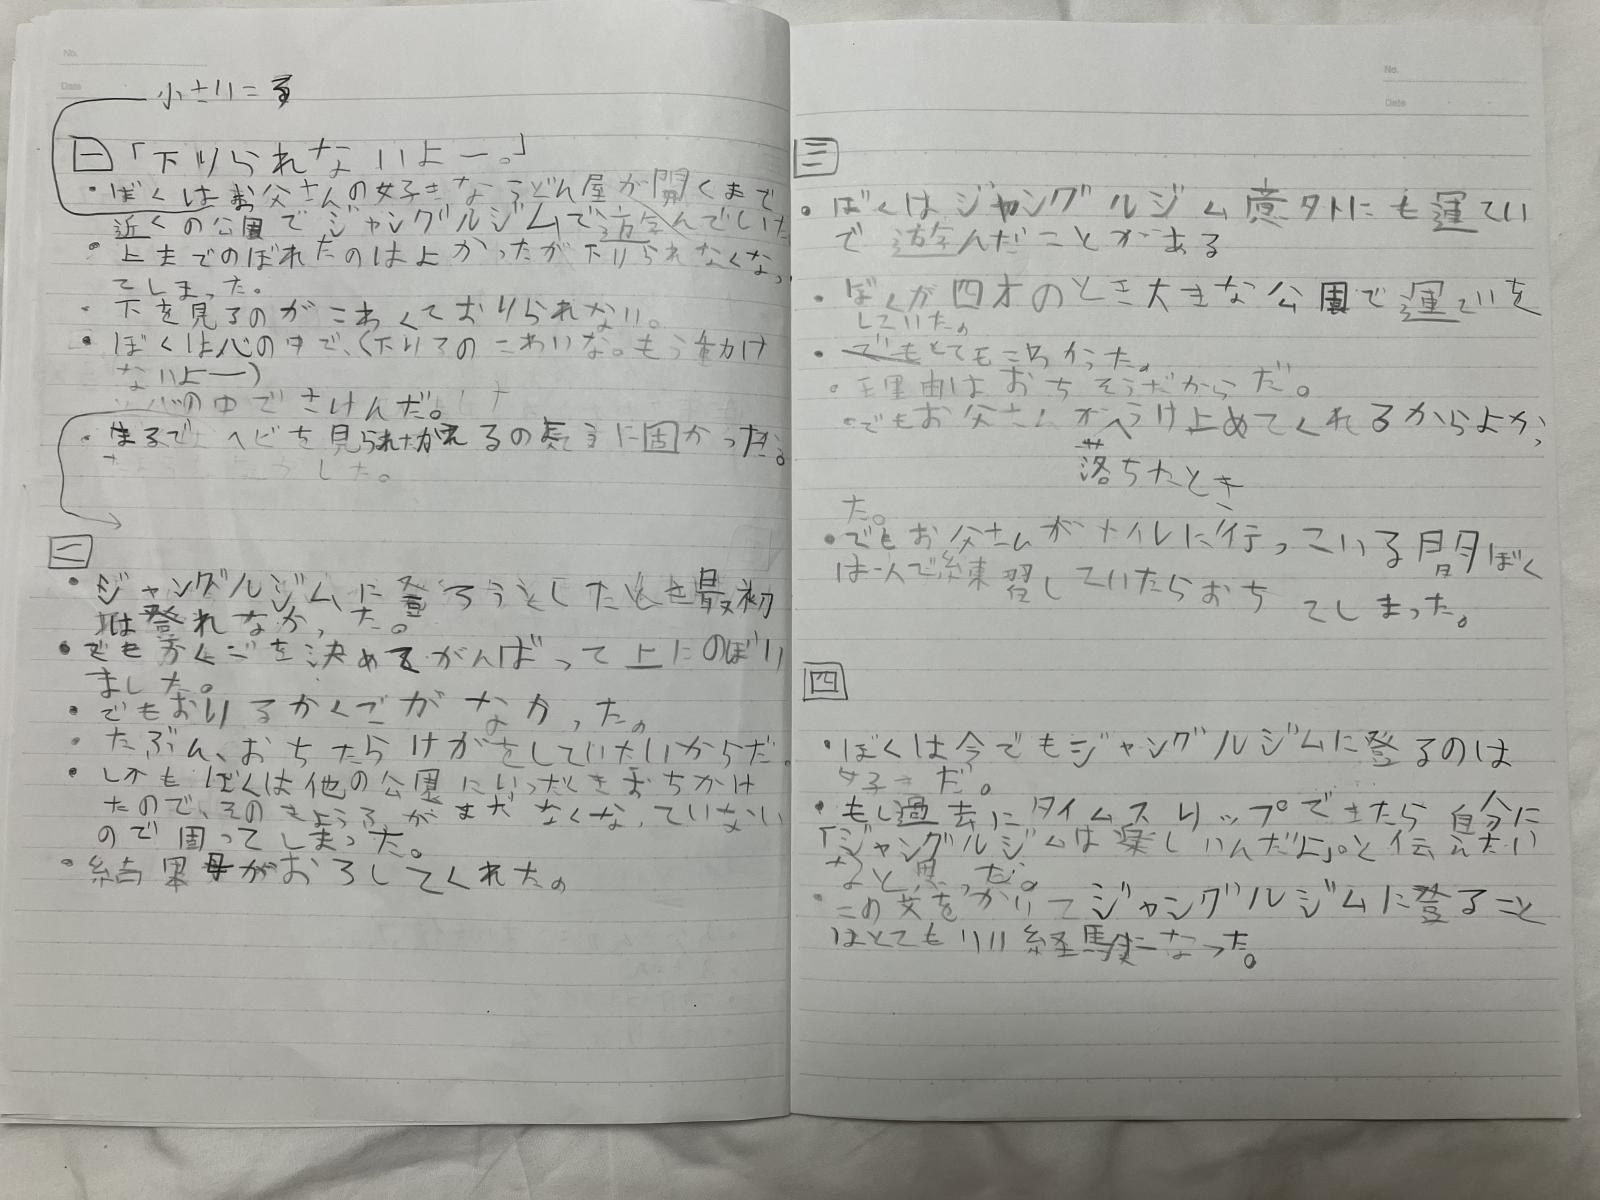 No.
Date
小さいころ
一 「下りられないよー。」
・ぼくはお父さんの好きなうどん屋が開くまで
近くの公園でジャングルジムで遊んでいた
・上までのぼれたのはよかったが下りられなくなっ
てしまった。
・下を見るのがこわくておりられない。
・ぼくは心の中で、(下りるのこわいな。もう動け
ないよー)
と心の中でさけんだ。
・まるでヘビを見られた
した。
二
・ジャングルジムに登ろうとしたとき最初
は登れなかった。
・でもかくごを決めてがんばって上にのぼり
ました。
・でもおりるかくごがなかった。
・たぶん、おちたらけがをしていたいからだ。
・しかもぼくは他の公園にいったときおちかけ
たので、そのきょうふがまだなくなっていない
ので困ってしまった。
・結果母がおろしてくれた。
No.
Date
三
・ぼくはジャングルジム意外にも運てい
で遊んだことがある
・ぼくが四才のとき大きな公園で運ていを
していた。
・でもとても
・理由はおちそうだからだ。
・でもお父さんがうけ止めてくれるからよかっ
落ちたとき
た。
・でもお父さんがトイレに行っている間ぼく
は一人で練習していたらおちてしまった。
四
・ぼくは今でもジャングルジムに登るのは
好きだ。
・もし過去にタイムスリップできたら自分に
「ジャングルジムは楽しいんだよ」。と伝えたい
なと思った。
・この文をかりてジャングルジムに登ること
はとてもいい経験になった。